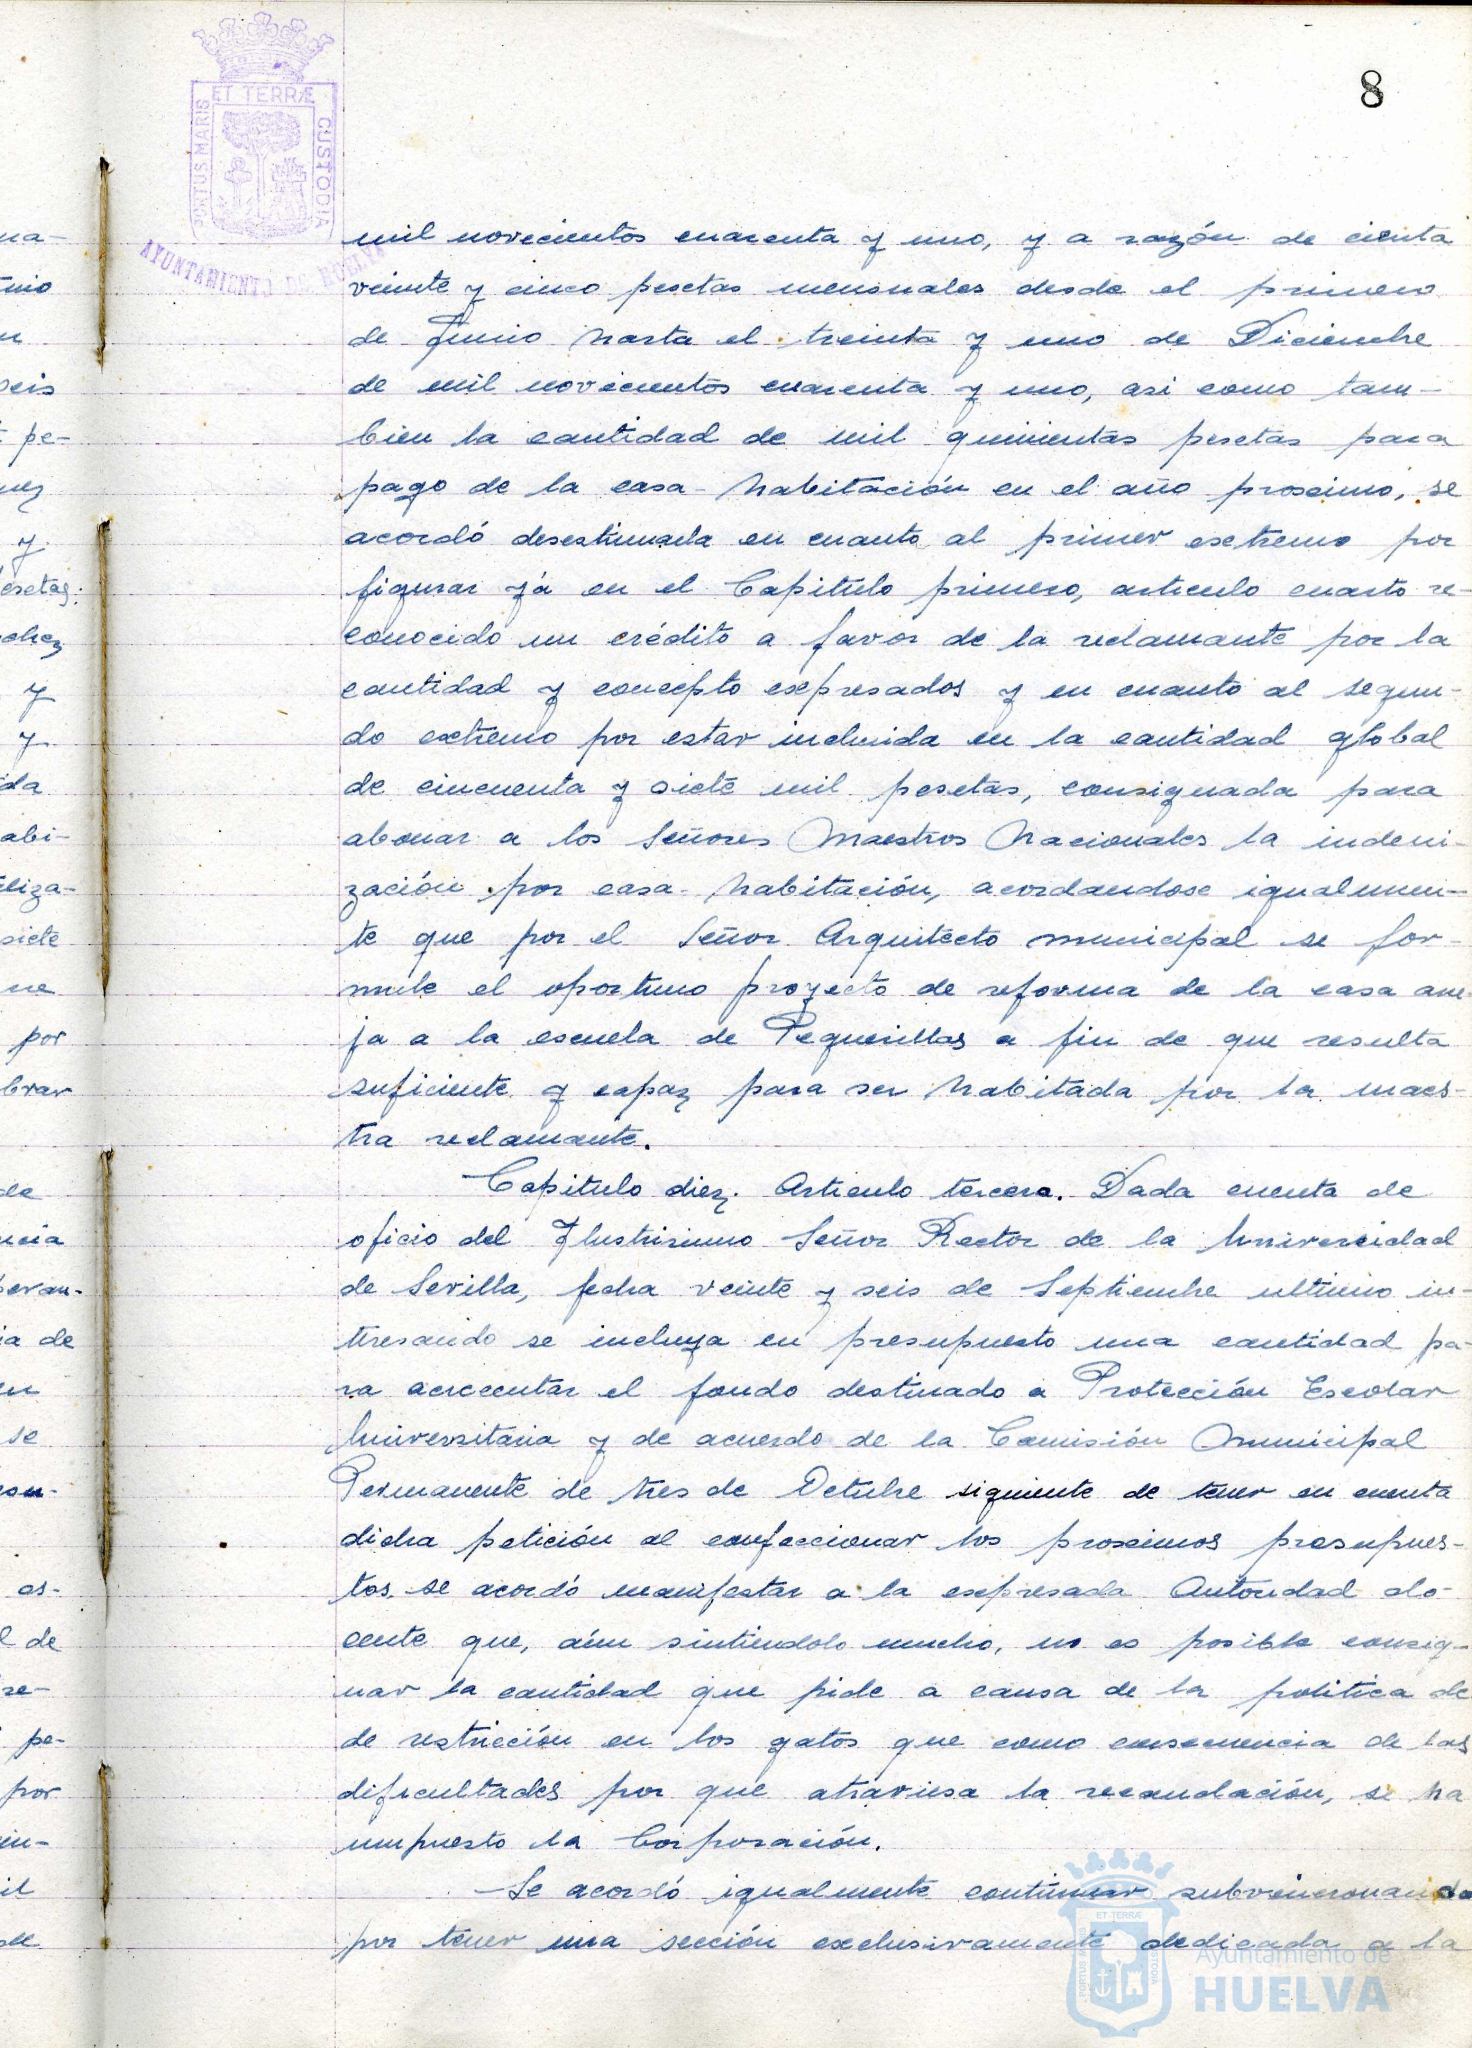 8
ET TERRÆ
PORTUS MARIS
CUSTODIA
AYUNTAMIENTO DE HUELVA
mil novecientos cuarenta y uno, y a razón de cienta
veinte y cinco pesetas mensuales desde el primero
de Junio hasta el treinta y uno de Diciembre
de mil novecientos cuarenta y uno, asi como tam-
bien la cantidad de mil quinientas pesetas para
pago de la casa-habitación en el año proximo, se
acordó desestimarla en cuanto al primer extremo por
figurar yá en el Capitulo primero, articulo cuarto re-
conocido un crédito a favor de la reclamante por la
cantidad y concepto expresados y en cuanto al segun-
do extremo por estar incluida en la cantidad global
de cincuenta y siete mil pesetas, consignada para
abonar a los Señores Maestros Nacionales la indemi-
zación por casa-habitación, acordandose igualmen-
te que por el Señor Arquitecto municipal se for-
mule el oportuno proyecto de reforma de la casa ane-
ja a la escuela de Pequerillas a fin de que resulta
suficiente y capaz para ser habitada por la maes-
tra reclamante.
Capitulo diez. Articulo tercero. Dada cuenta de
oficio del Ilustrisimo Señor Rector de la Universidad
de Sevilla, fecha veinte y seis de Septiembre ultimo in-
teresando se incluya en presupuesto una cantidad pa-
ra acrecentar el fondo destinado a Protección Escolar
Universitaria y de acuerdo de la Comisión Municipal
Permanente de tres de Octubre siguiente de tener en cuenta
dicha petición al confeccionar los proximos presupues-
tos, se acordó manifestar a la expresada Autoridad do-
cente que, aún sintiendolo mucho, no es posible consig-
nar la cantidad que pide a causa de la politica de
de restricción en los gatos que como consecuencia de las
dificultades por que atraviesa la recaudación, se ha
impuesto la Corporación.
Se acordó igualmente continuar subvencionando
por tener una sección exclusivamente dedicada a la
Ayuntamiento de
HUELVA